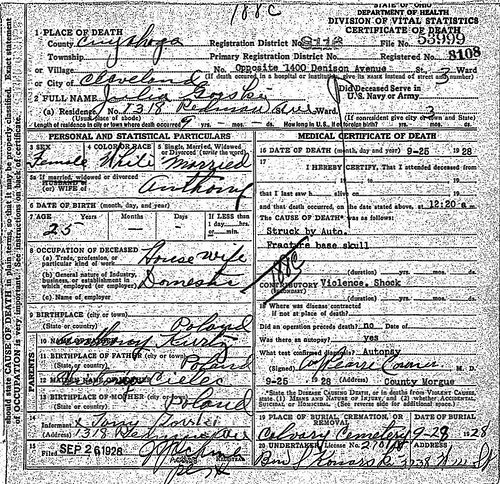 188C
STATE OF OHIO
DEPARTMENT OF HEALTH
DIVISION OF VITAL STATISTICS
CERTIFICATE OF DEATH
1 PLACE OF DEATH
County Cuyahoga
Registration District No.
File No. 53999
Township
Primary Registration District No.
Registered No. 8108
or Village
No. Opposite 1400 Denison Avenue St., 3 Ward
or City of Cleveland
(If death occurred in a hospital or institution, give its NAME instead of street and number)
Did Deceased Serve in
U.S. Navy or Army
2 FULL NAME Julia Gorski
(a) Residence. No. 1318 Redman Ave Ward. 3
(Usual place of abode)
(If nonresident give city or town and State)
Length of residence in city or town where death occurred 9 yrs. mos. ds. How long in U.S., if of foreign birth? yrs. mos. ds.
PERSONAL AND STATISTICAL PARTICULARS
3 SEX
Female
4 COLOR OR RACE
White
5 Single, Married, Widowed
or Divorced (write the word)
Married
5a If married, widowed or divorced
HUSBAND of
(or) WIFE of
Anthony
6 DATE OF BIRTH (month, day, and year)
7 AGE Years Months Days
If LESS than
1 day,....hrs.
or....min.
25 — —
8 OCCUPATION OF DECEASED
(a) Trade, profession, or
particular kind of work
House wife
(b) General nature of industry,
business, or establishment in
which employed (or employer)
Domestic
(c) Name of employer
9 BIRTHPLACE (city or town)
(State or country)
Poland
PARENTS
10 NAME OF FATHER
Anthony Kurtz
11 BIRTHPLACE OF FATHER (city or town)
(State or country)
Poland
12 MAIDEN NAME OF MOTHER
Cielec
13 BIRTHPLACE OF MOTHER (city or town)
(State or country)
Poland
14
Informant x Tony Gorski
(Address) 1318 Redman Ave
15
Filed SEP 26 1928
MEDICAL CERTIFICATE OF DEATH
16 DATE OF DEATH (month, day and year) 9-25 1928
17
I HEREBY CERTIFY, That I attended deceased from
that I last saw h alive on
and that death occurred, on the date stated above, at 12:20 a m.
The CAUSE OF DEATH* was as follows:
Struck by Auto.
Fracture base skull
188C
(duration) yrs. mos. ds.
CONTRIBUTORY Violence, Shock
(SECONDARY)
(duration) yrs. mos. ds.
18 Where was disease contracted
if not at place of death?
Did an operation precede death? no Date of
Was there an autopsy? yes
What test confirmed diagnosis? Autopsy
(Signed) Coroner M. D.
9-25 1928 (Address) County Morgue
*State the DISEASE CAUSING DEATH, or in deaths from VIOLENT CAUSES,
state (1) MEANS AND NATURE OF INJURY; and (2) whether ACCIDENTAL,
SUICIDAL, or HOMICIDAL. (See reverse side for additional space.)
19 PLACE OF BURIAL, CREMATION, OR REMOVAL
DATE OF BURIAL
Calvary Cemetery 9-28 1928
20 UNDERTAKER License No.
ADDRESS
should state CAUSE OF DEATH in plain terms, so that it may be properly classified. Exact statement
of OCCUPATION is very important. See instructions on back of certificate.